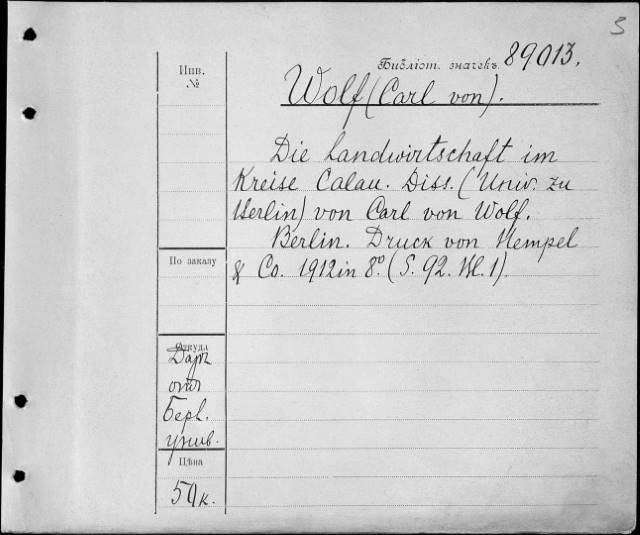 5
Инв.
№
Библіот. значекъ. 89013.
Wolf (Carl von).
Die Landwirtschaft im
Kreise Calau. Diss. (Univ. zu
Berlin) von Carl von Wolf.
Berlin. Druck von Hempel
& Co. 1912 in 8º. (S. 92. Bl. 1).
По заказу
Откуда
Даръ
отъ
Берл.
унив.
Цѣна
50 к.